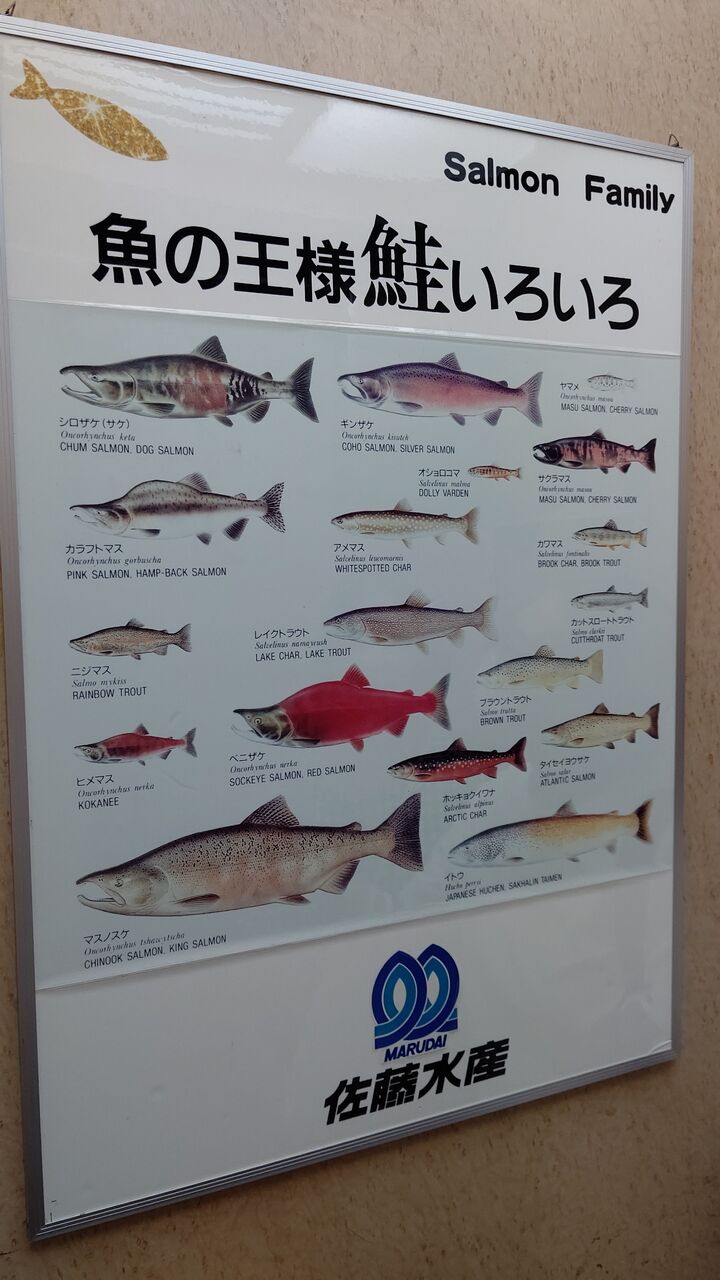 Salmon Family
魚の王様鮭いろいろ
シロザケ(サケ)
Oncorhynchus keta
CHUM SALMON, DOG SALMON
ギンザケ
Oncorhynchus kisutch
COHO SALMON, SILVER SALMON
ヤマメ
Oncorhynchus masou
MASU SALMON, CHERRY SALMON
オショロコマ
Salvelinus malma
DOLLY VARDEN
サクラマス
Oncorhynchus masou
MASU SALMON, CHERRY SALMON
カラフトマス
Oncorhynchus gorbuscha
PINK SALMON, HAMP-BACK SALMON
アメマス
Salvelinus leucomaenis
WHITESPOTTED CHAR
カワマス
Salvelinus fontinalis
BROOK CHAR, BROOK TROUT
カットスロートトラウト
Salmo clarkii
CUTTHROAT TROUT
ニジマス
Salmo mykiss
RAINBOW TROUT
レイクトラウト
Salvelinus namaycush
LAKE CHAR, LAKE TROUT
ブラウントラウト
Salmo trutta
BROWN TROUT
ヒメマス
Oncorhynchus nerka
KOKANEE
ベニザケ
Oncorhynchus nerka
SOCKEYE SALMON, RED SALMON
タイセイヨウサケ
Salmo salar
ATLANTIC SALMON
ホッキョクイワナ
Salvelinus alpinus
ARCTIC CHAR
マスノスケ
Oncorhynchus tshawytscha
CHINOOK SALMON, KING SALMON
イトウ
Hucho perryi
JAPANESE HUCHEN, SAKHALIN TAIMEN
MARUDAI
佐藤水産